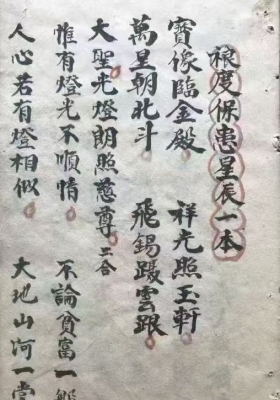 禳度保患星辰一本
寳像臨金殿　祥光照玉軒
萬星朝北斗　飛錫躡雲跟
大聖光燈朗照慈尊三合
惟有燈光不順情　不論貧富一
人心若有燈相似　大地山河一